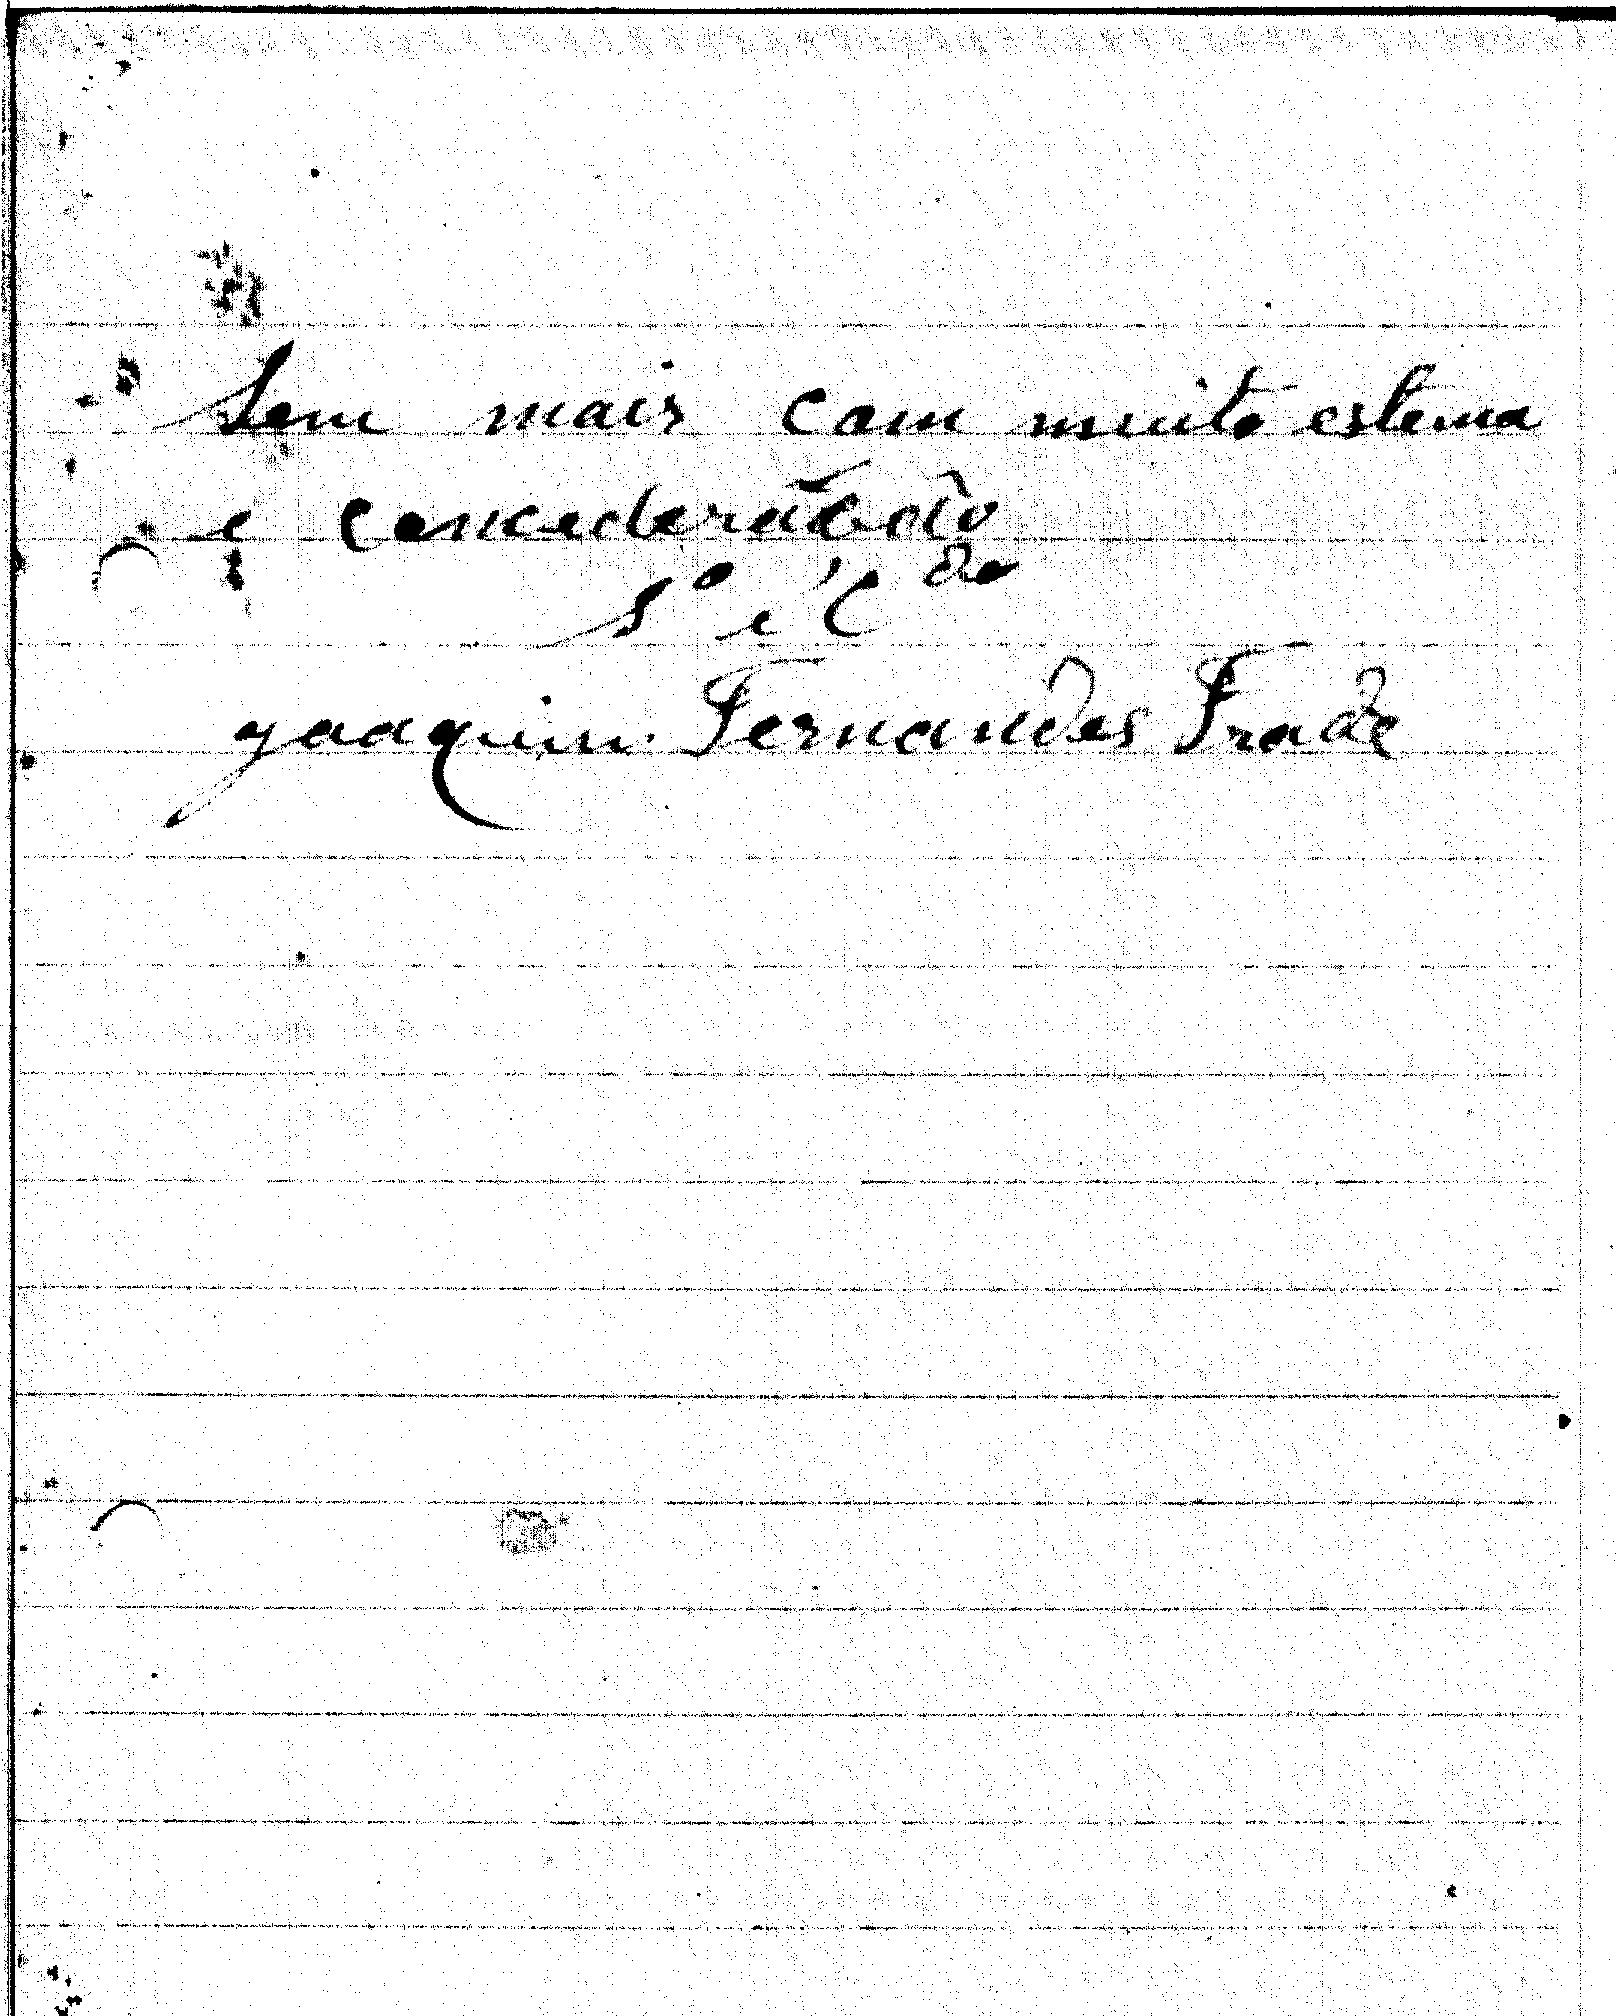 Sem mais com muito estema
e concederacão
Sº e Cdo
Joaquim Fernandes Frade